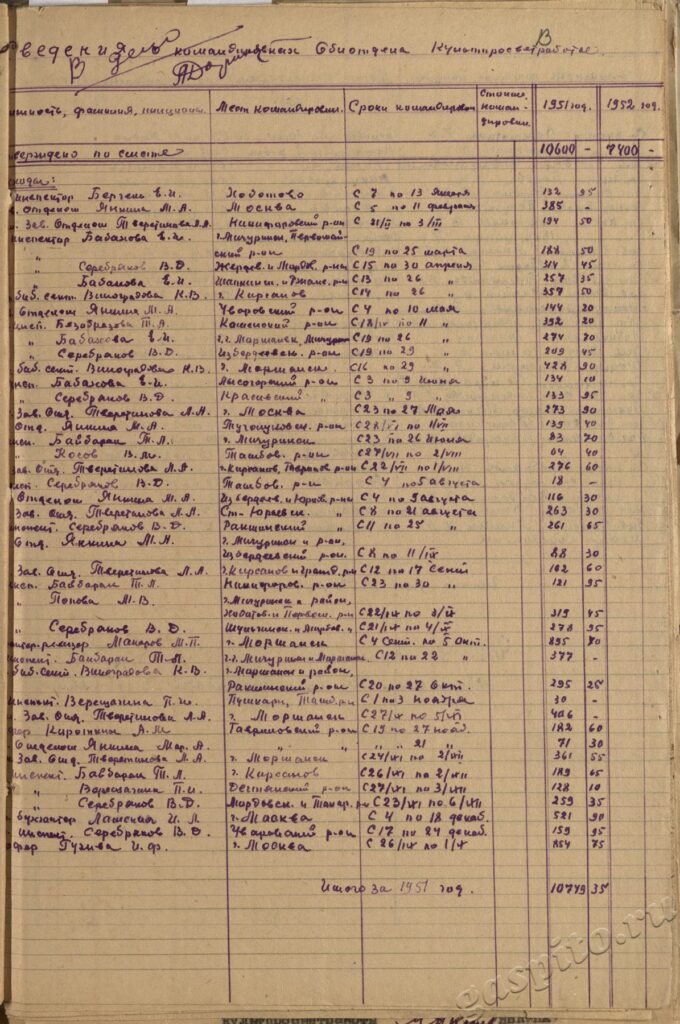 ведения командировках Облотдела Культпросветработе.
В дело
должность, фамилия, инициалы Место командировки. Сроки командировки Стоимо. коман- дировки 1951 год. 1952 год.
верждено по смете 10600 - 7400 -
сходы:
инспектор Берген Е.И. Хоботово С 7 по 13 Января 132 95
в. Отделом Янкина М.А. Москва С 5 по 11 февраля 385 -
Зав. Отделом Тверетинова Л.А. Никифоровский р-он С 21/II по 3/III 194 50
инспектор Бабахова Е.И. г. Мичуринск, Первомай-
ский р-он С 19 по 25 марта 188 50
" Серебряков В.Д. Жердев. и Мордов. р-ны С 15 по 30 апреля 314 45
" Бабахова Е.И. С 13 по 26 " 257 35
биб. сект. Виноградова К.В. г. Кирсанов С 14 по 26 " 357 50
Отделом Янкина М.А. Уваровский р-он С 4 по 10 мая 144 20
инсп. Безобразова Т.А. Каменский р-он по 11 " 392 20
" Бабахова Е.И. г.г. Моршанск, Мичурин С 19 по 26 " 274 70
" Серебряков В.Д. Избердеевск. р-он С 19 по 29 " 209 45
биб. сект. Виноградова К.В. г. Моршанск С 16 по 29 " 428 90
инсп. Бабахова Е.И. Лысогорский р-он С 3 по 9 Июня 134 10
" Серебряков В.Д. Красивский " С 3 " 9 " 133 95
Зав. Отд. Тверетинова Л.А. г. Москва С 23 по 27 Мая 273 90
Отд. Янкина М.А. Туголуковск. р-он С 28/VI по 1/VII 139 40
инсп. Байбарак Т.Л. г. Мичуринск С 23 по 26 Июня 83 70
" Косов В.М. Тамбов. р-он С 27/VI по 2/VII 64 40
зав. Отд. Тверетинова Л.А. г. Кирсанов, Гавринов. р-он С 22/VI по 1/VII 276 60
инсп. Серебряков В.Д. Тамбов. р-он С 4 по 5 августа 18 -
Отделом Янкина М.А. Избердеев. и Юрлов. р-ны С 4 по 9 августа 116 30
Зав. Отд. Тверетинова Л.А. Ст-Юрьевск. " С 8 по 21 августа 263 30
инспект. Серебряков В.Д. Ракшинский " С 11 по 25 " 261 65
Отд. Янкина М.А. г. Мичуринск и р-он,
Избердеевский р-он. С 8 по 11/IX 88 30
Зав. Отд. Тверетинова Л.А. г. Кирсанов и р-ны С 12 по 17 Сент 102 60
инсп. Байбарак Т.Л. Никифоров. р-он С 23 по 30 " 121 95
" Попова М.В. г. Мичуринск и район,
Хоботов. и Первом. р-ны С 22/IX по 3/X 319 45
" Серебряков В.Д. С 21/IX по 4/X 278 95
Макаров М.П. г. Моршанск С 4 Сент. по 5 Окт. 895 70
инспект. Байбарак Т.Л. г.г. Мичуринск и Моршанск С 12 по 22 " 377 -
биб. сект. Виноградова К.В. г. Моршанск и район,
Ракшинский р-он С 20 по 27 Окт. 295 25
инспект. Верещагина П.И. Пушкари, Тамб. р-н С 1 по 3 ноября 30 -
Зав. Отд. Тверетинова Л.А. г. Моршанск 406 -
Кирюхина А.М. Гавриловский р-он С 19 по 27 нояб. 182 60
Отделом Янкина Мар. А. " " " " 21 " 71 30
Зав. Отд. Тверетинова Л.А. г. Моршанск С 24/XI по 2/XII 361 55
инспект. Байбарак Т.Л. г. Кирсанов С 26/XI по 2/XII 189 65
" Верещагина П.И. р-он С 27/XI по 3/XII 128 10
" Серебряков В.Д. Мордовск. и р-ны С 23/XI по 6/XII 259 35
бухгалтер Ламская И.Л. г. Москва С 4 по 18 декаб. 521 90
инспект. Серебряков В.Д. Уваровский р-он С 17 по 24 декаб. 159 95
Гузива И.Ф. г. Москва С 26/IX по 1/X 854 75
Итого за 1951 год. 10779 35
gaspito.ru